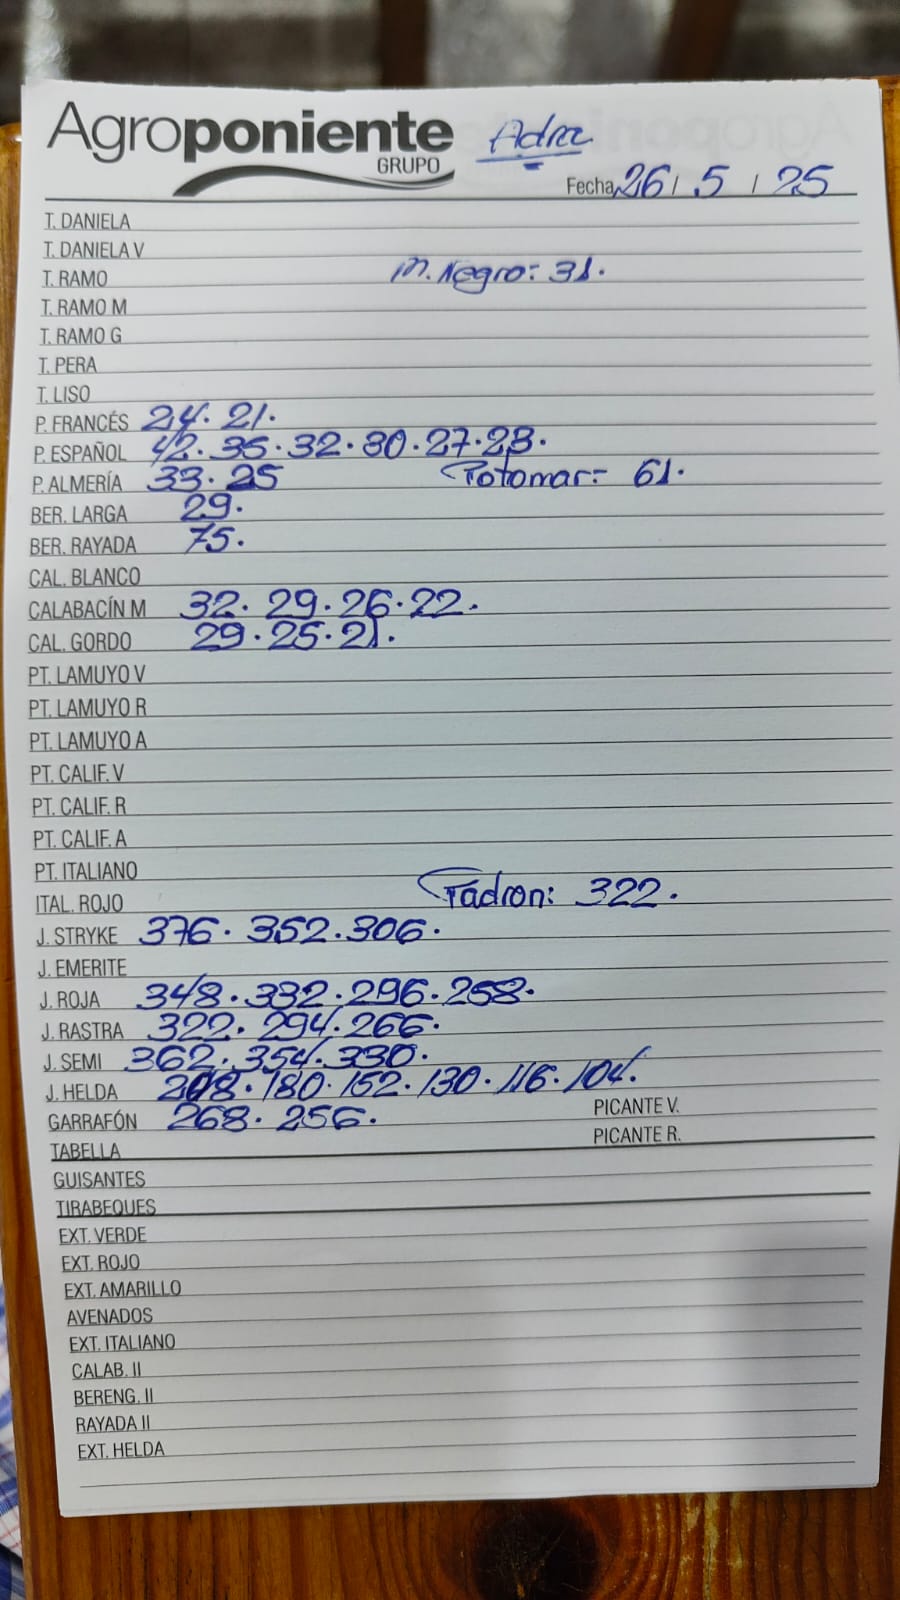 Agroponiente Adra
GRUPO
Fecha 26 / 5 / 25
T. DANELA
T. DANIELA V
T. RAMO M. Negro: 31.
T. RAMO M
T. RAMO G
T. PERA
T. LISO
P. FRANCÉS 24. 21.
P. ESPAÑOL 42. 35. 32. 30. 27. 23.
P. ALMERÍA 33. 25 Potomar= 61.
BER. LARGA 29.
BER. RAYADA 75.
CAL. BLANCO
CALABACÍN M 32. 29. 26. 22.
CAL. GORDO 29. 25. 21.
PT. LAMUYO V
PT. LAMUYO R
PT. LAMUYO A
PT. CALIF. V
PT. CALIF. R
PT. CALIF. A
PT. ITALIANO
ITAL. ROJO Padron: 322.
J. STRYKE 376. 352. 306.
J. EMERITE
J. ROJA 348. 332. 296. 258.
J. RASTRA 322. 294. 266.
J. SEMI 362. 354. 330.
J. HELDA 208. 180. 152. 130. 116. 104.
GARRAFÓN 268. 256. PICANTE V.
TABELLA PICANTE R.
GUISANTES
TIRABEQUES
EXT. VERDE
EXT. ROJO
EXT. AMARILLO
AVENADOS
EXT. ITALIANO
CALAB. II
BERENG. II
RAYADA II
EXT. HELDA